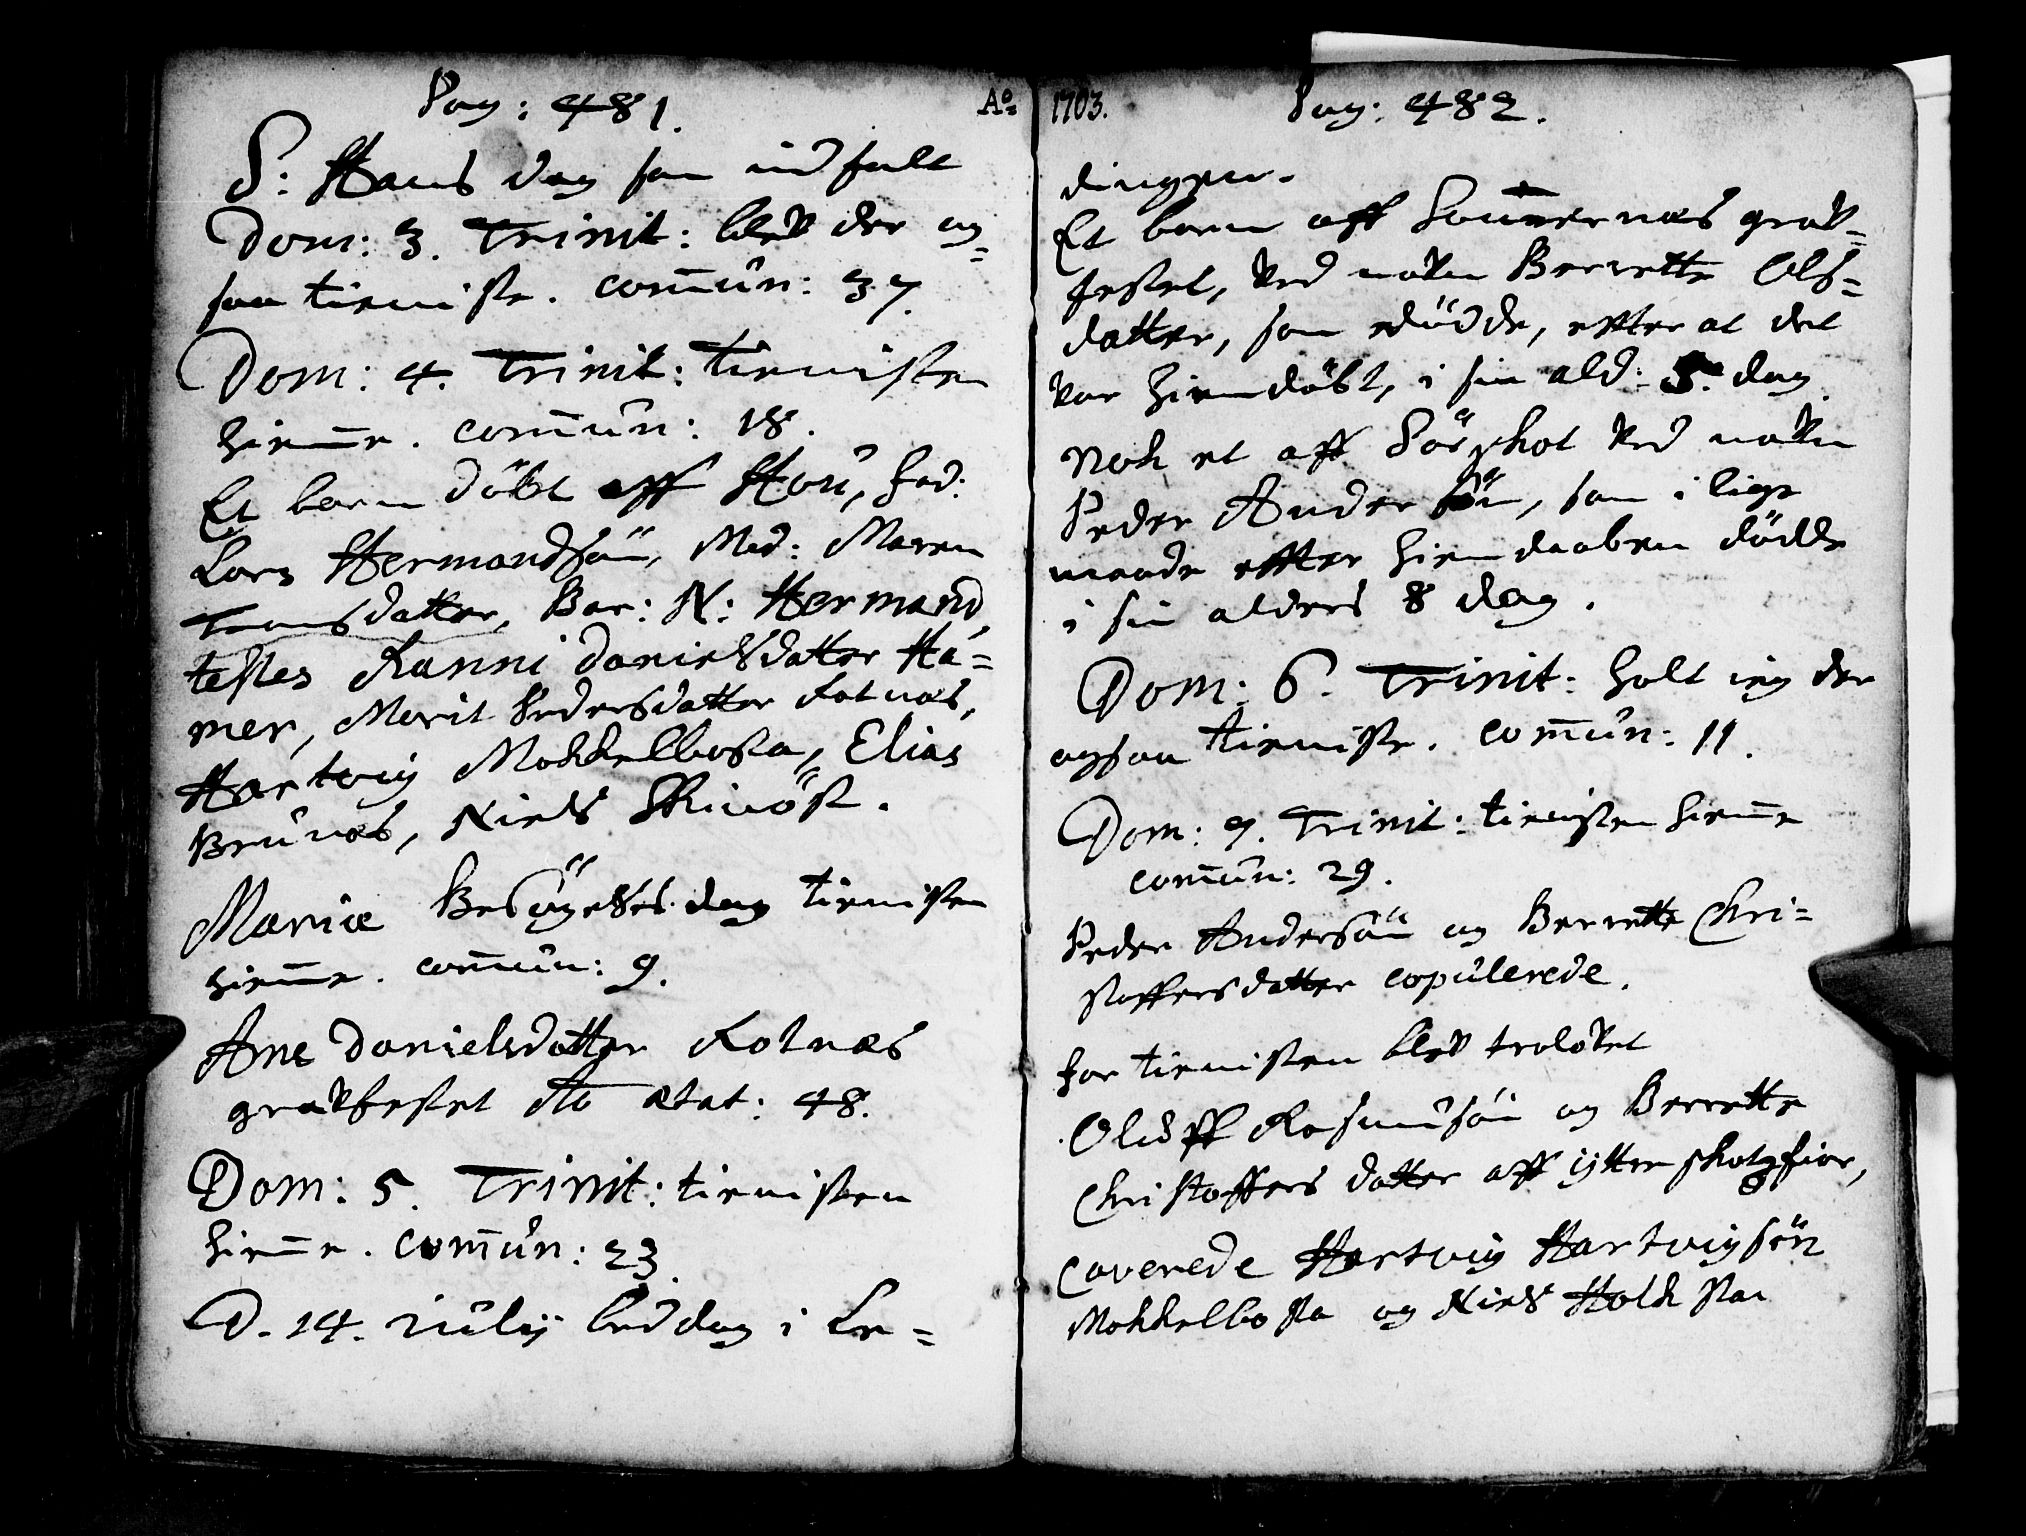 Pag: 481.
S: Hans dag som ind falt
Dom: 3. Trinit: blev der og=
saa tieniste. Com̄un: 37.
Dom: 4. Trinit: tienisten
hiem̄e. com̄un: 18.
Et barn döbt aff Hou, Fad:
Lars Hermandsön, Mod: Maren
Tomsdatter, Bar: N: Hermand,
testes Ranni Danielsdatter Ha=
mer, Marit Pedersdatter Kolnæs,
Hartvig Mokkelbosta, Elias
Brunæs, Niels Skinöst.
Mariæ Besögelses dag tienisten
hiem̄e. com̄un: 9.
Ane Danielsdatter Kolnæs
gravfestet ætat: 48.
Dom: 5. Trinit: tienisten
hiem̄e. Com̄un: 23.
D. 14. Iulij beddag i Le=
Ao 1703. Pag: 482.
dingen.
Et barn aff Som̄ernæs grav=
festet, ved navn Berrette Ols=
datter, som dödde, effter at det
var hiemdöbt, i sin ald: 5. dag.
Nok et aff Pörskot ved navn
Peder Andersön, som i lige
maade effter hiemdaaben dödde
i sin alders 8 dag.
Dom: 6. Trinit: holt ieg der
ogsaa tieniste. Com̄un: 11.
Dom: 7. Trinit: tienisten hiem̄e
com̄un: 29.
Peder Andersön og Berrette Chri=
stoffersdatter copulerede.
For tienisten blev trolovet
Oluff Rasmusön og Berrette
Christoffers datter aff ytter skotzfior,
Caverede Hartvig Hartvigsön
Mokkelbosta og Niels Holkestad